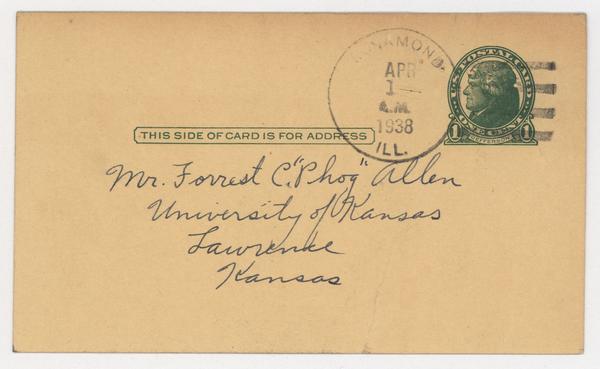 APR
1
A.M.
1938
ILL.
U.S. POSTAL CARD
ONE CENT
1 1
JEFFERSON
THIS SIDE OF CARD IS FOR ADDRESS
Mr. Forrest C. "Phog" Allen
University of Kansas
Lawrence
Kansas